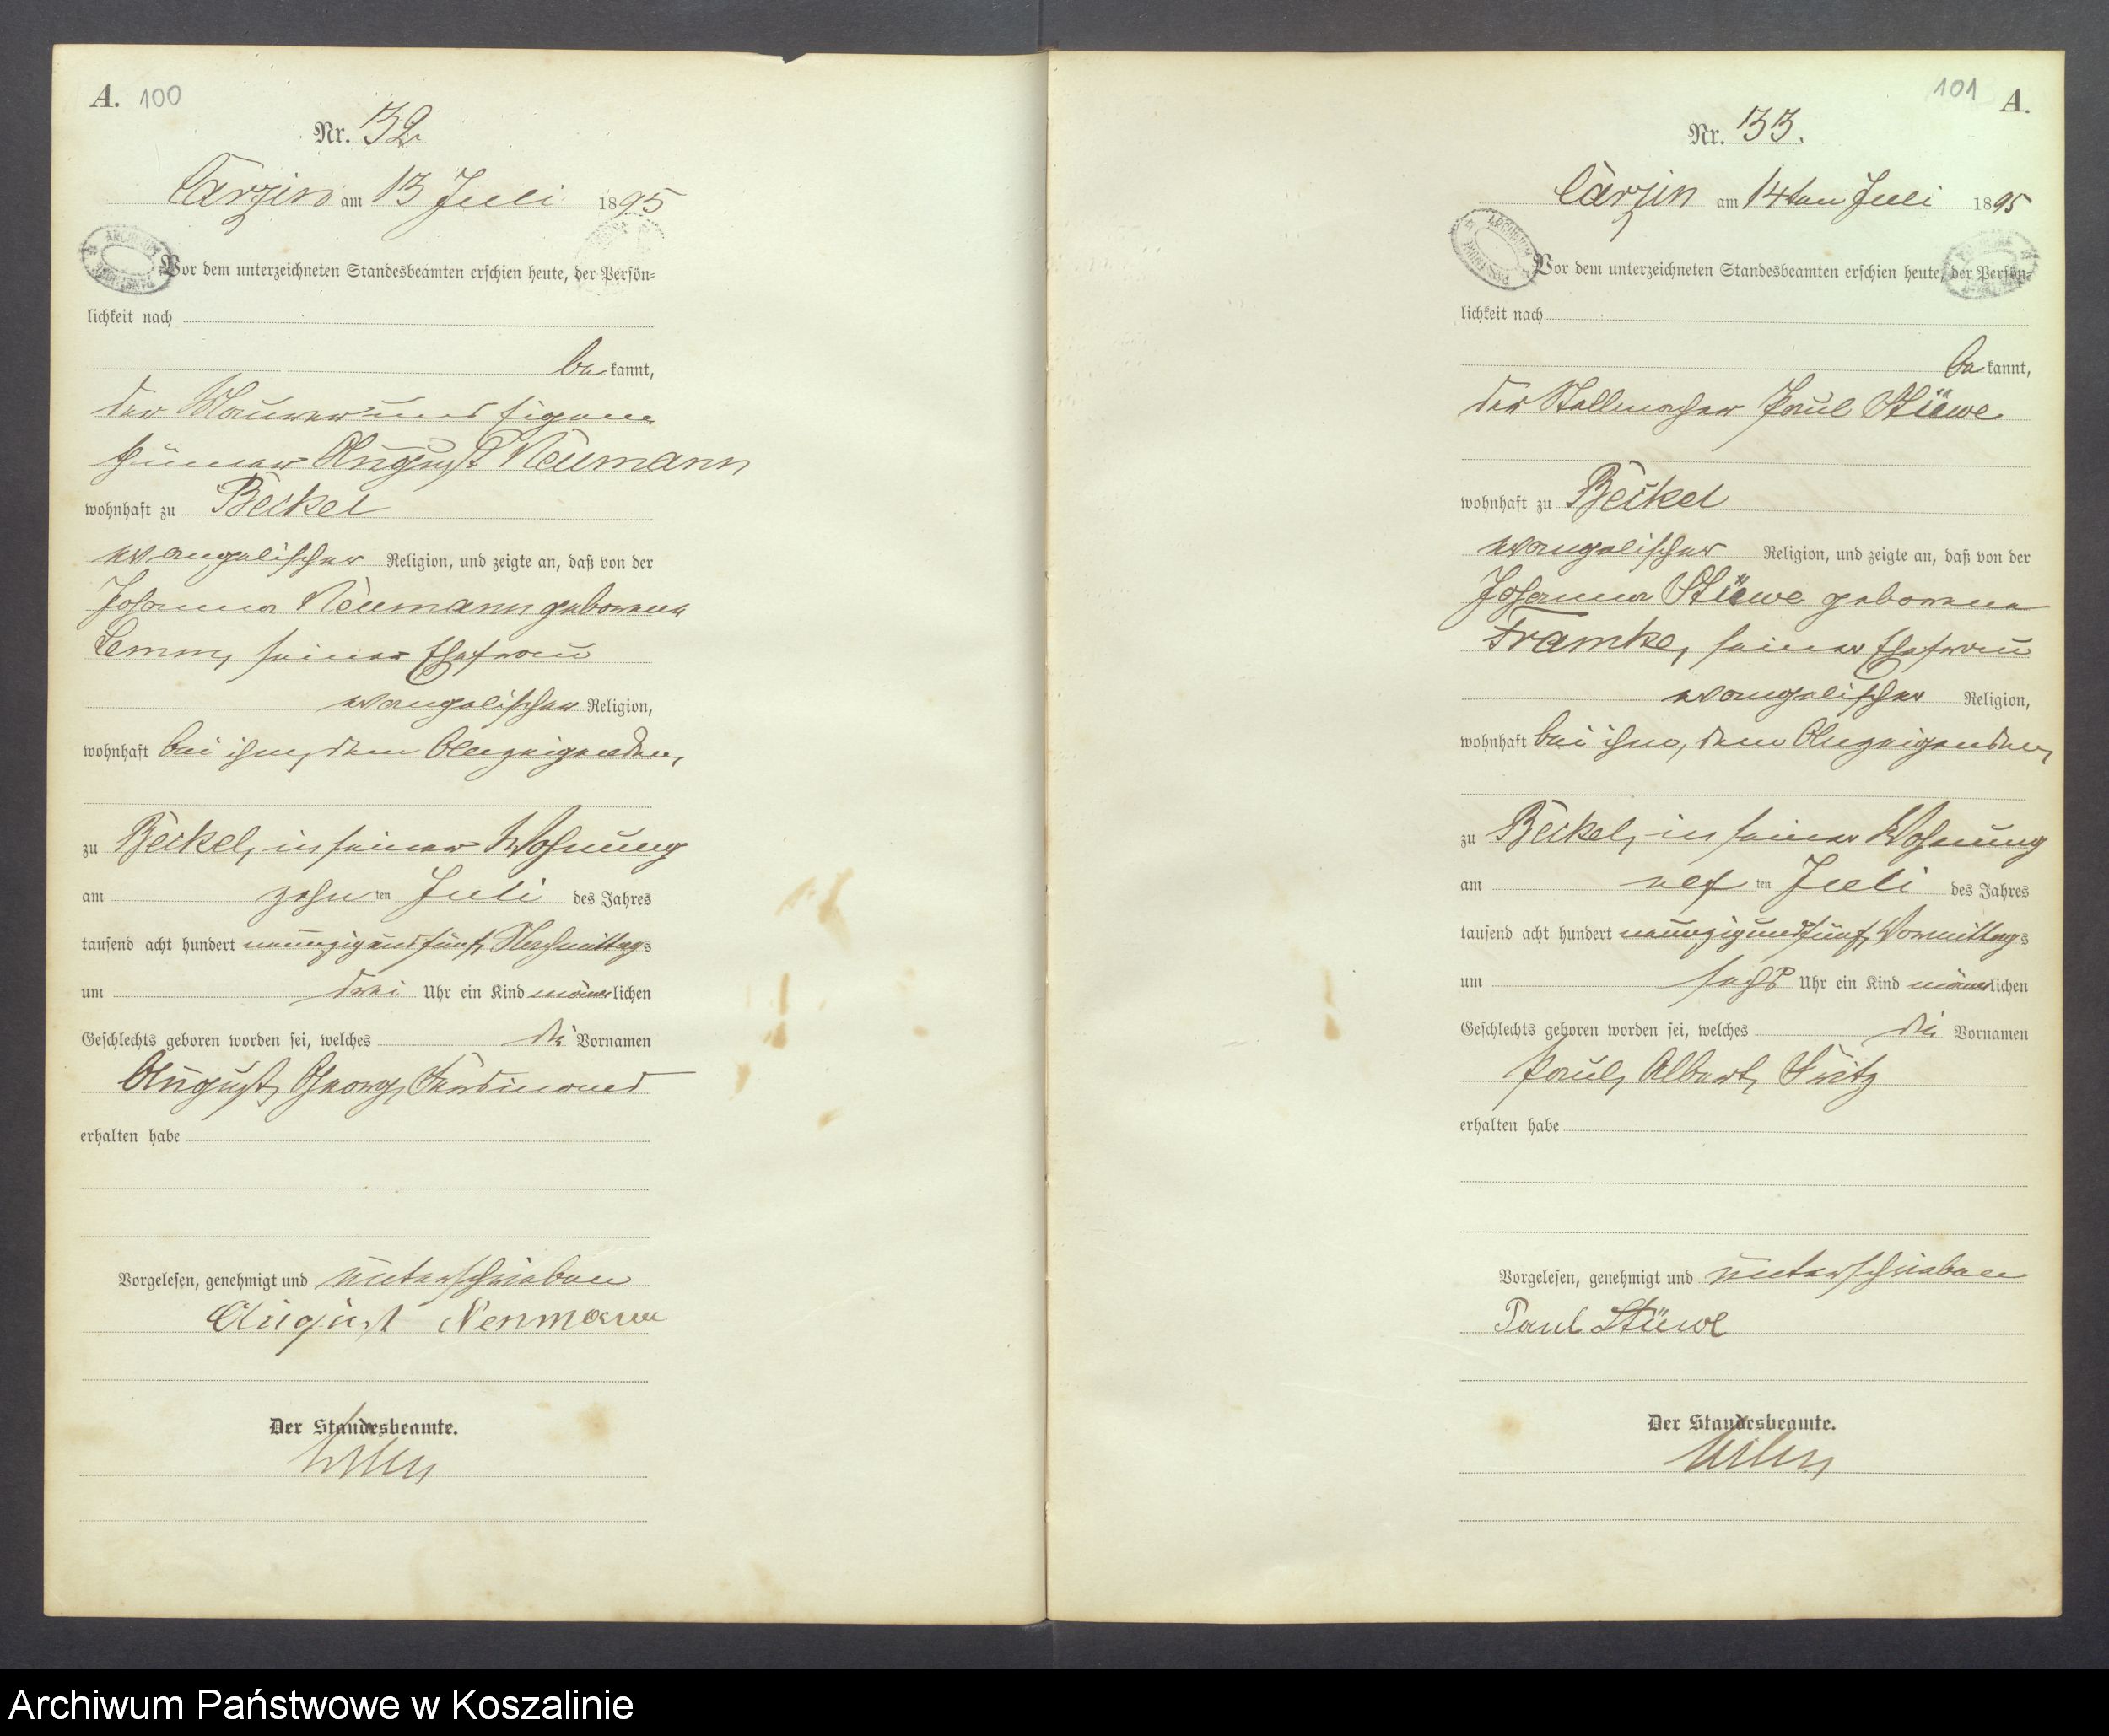 A. 100
Nr. 32
Carzin am 13 Juli 1895
Vor dem unterzeichneten Standesbeamten erschien heute, der Persön-
lichkeit nach
be kannt,
der Maurer und Eigen-
thümer August Neumann
wohnhaft zu Beckel
evangelischer Religion, und zeigte an, daß von der
Johanna Neumann geborene
Lemm, seiner Ehefrau
evangelischer Religion,
wohnhaft bei ihm, dem Anzeigenden,
zu Beckel, in seiner Wohnung
am zehn ten Juli des Jahres
tausend acht hundert neunzig und fünf, Nachmittags
um drei Uhr ein Kind männlichen
Geschlechts geboren worden sei, welches die Vornamen
August, Georg, Ferdinand
erhalten habe
Vorgelesen, genehmigt und unterschrieben
August Neumann
Der Standesbeamte.
101 A.
Nr. 33.
Carzin am 14ten Juli 1895
Vor dem unterzeichneten Standesbeamten erschien heute, der Persön-
lichkeit nach
be kannt,
der Stellmacher Paul Stüwe
wohnhaft zu Beckel
evangelischer Religion, und zeigte an, daß von der
Johanna Stüwe geborene
Framke, seiner Ehefrau
evangelischer Religion,
wohnhaft bei ihm, dem Anzeigenden,
zu Beckel, in seiner Wohnung
am elf ten Juli des Jahres
tausend acht hundert neunzig und fünf, Vormittags
um sechs Uhr ein Kind männlichen
Geschlechts geboren worden sei, welches die Vornamen
Paul, Albert, Fritz
erhalten habe
Vorgelesen, genehmigt und unterschrieben
Paul Stüwe
Der Standesbeamte.
Archiwum Państwowe w Koszalinie